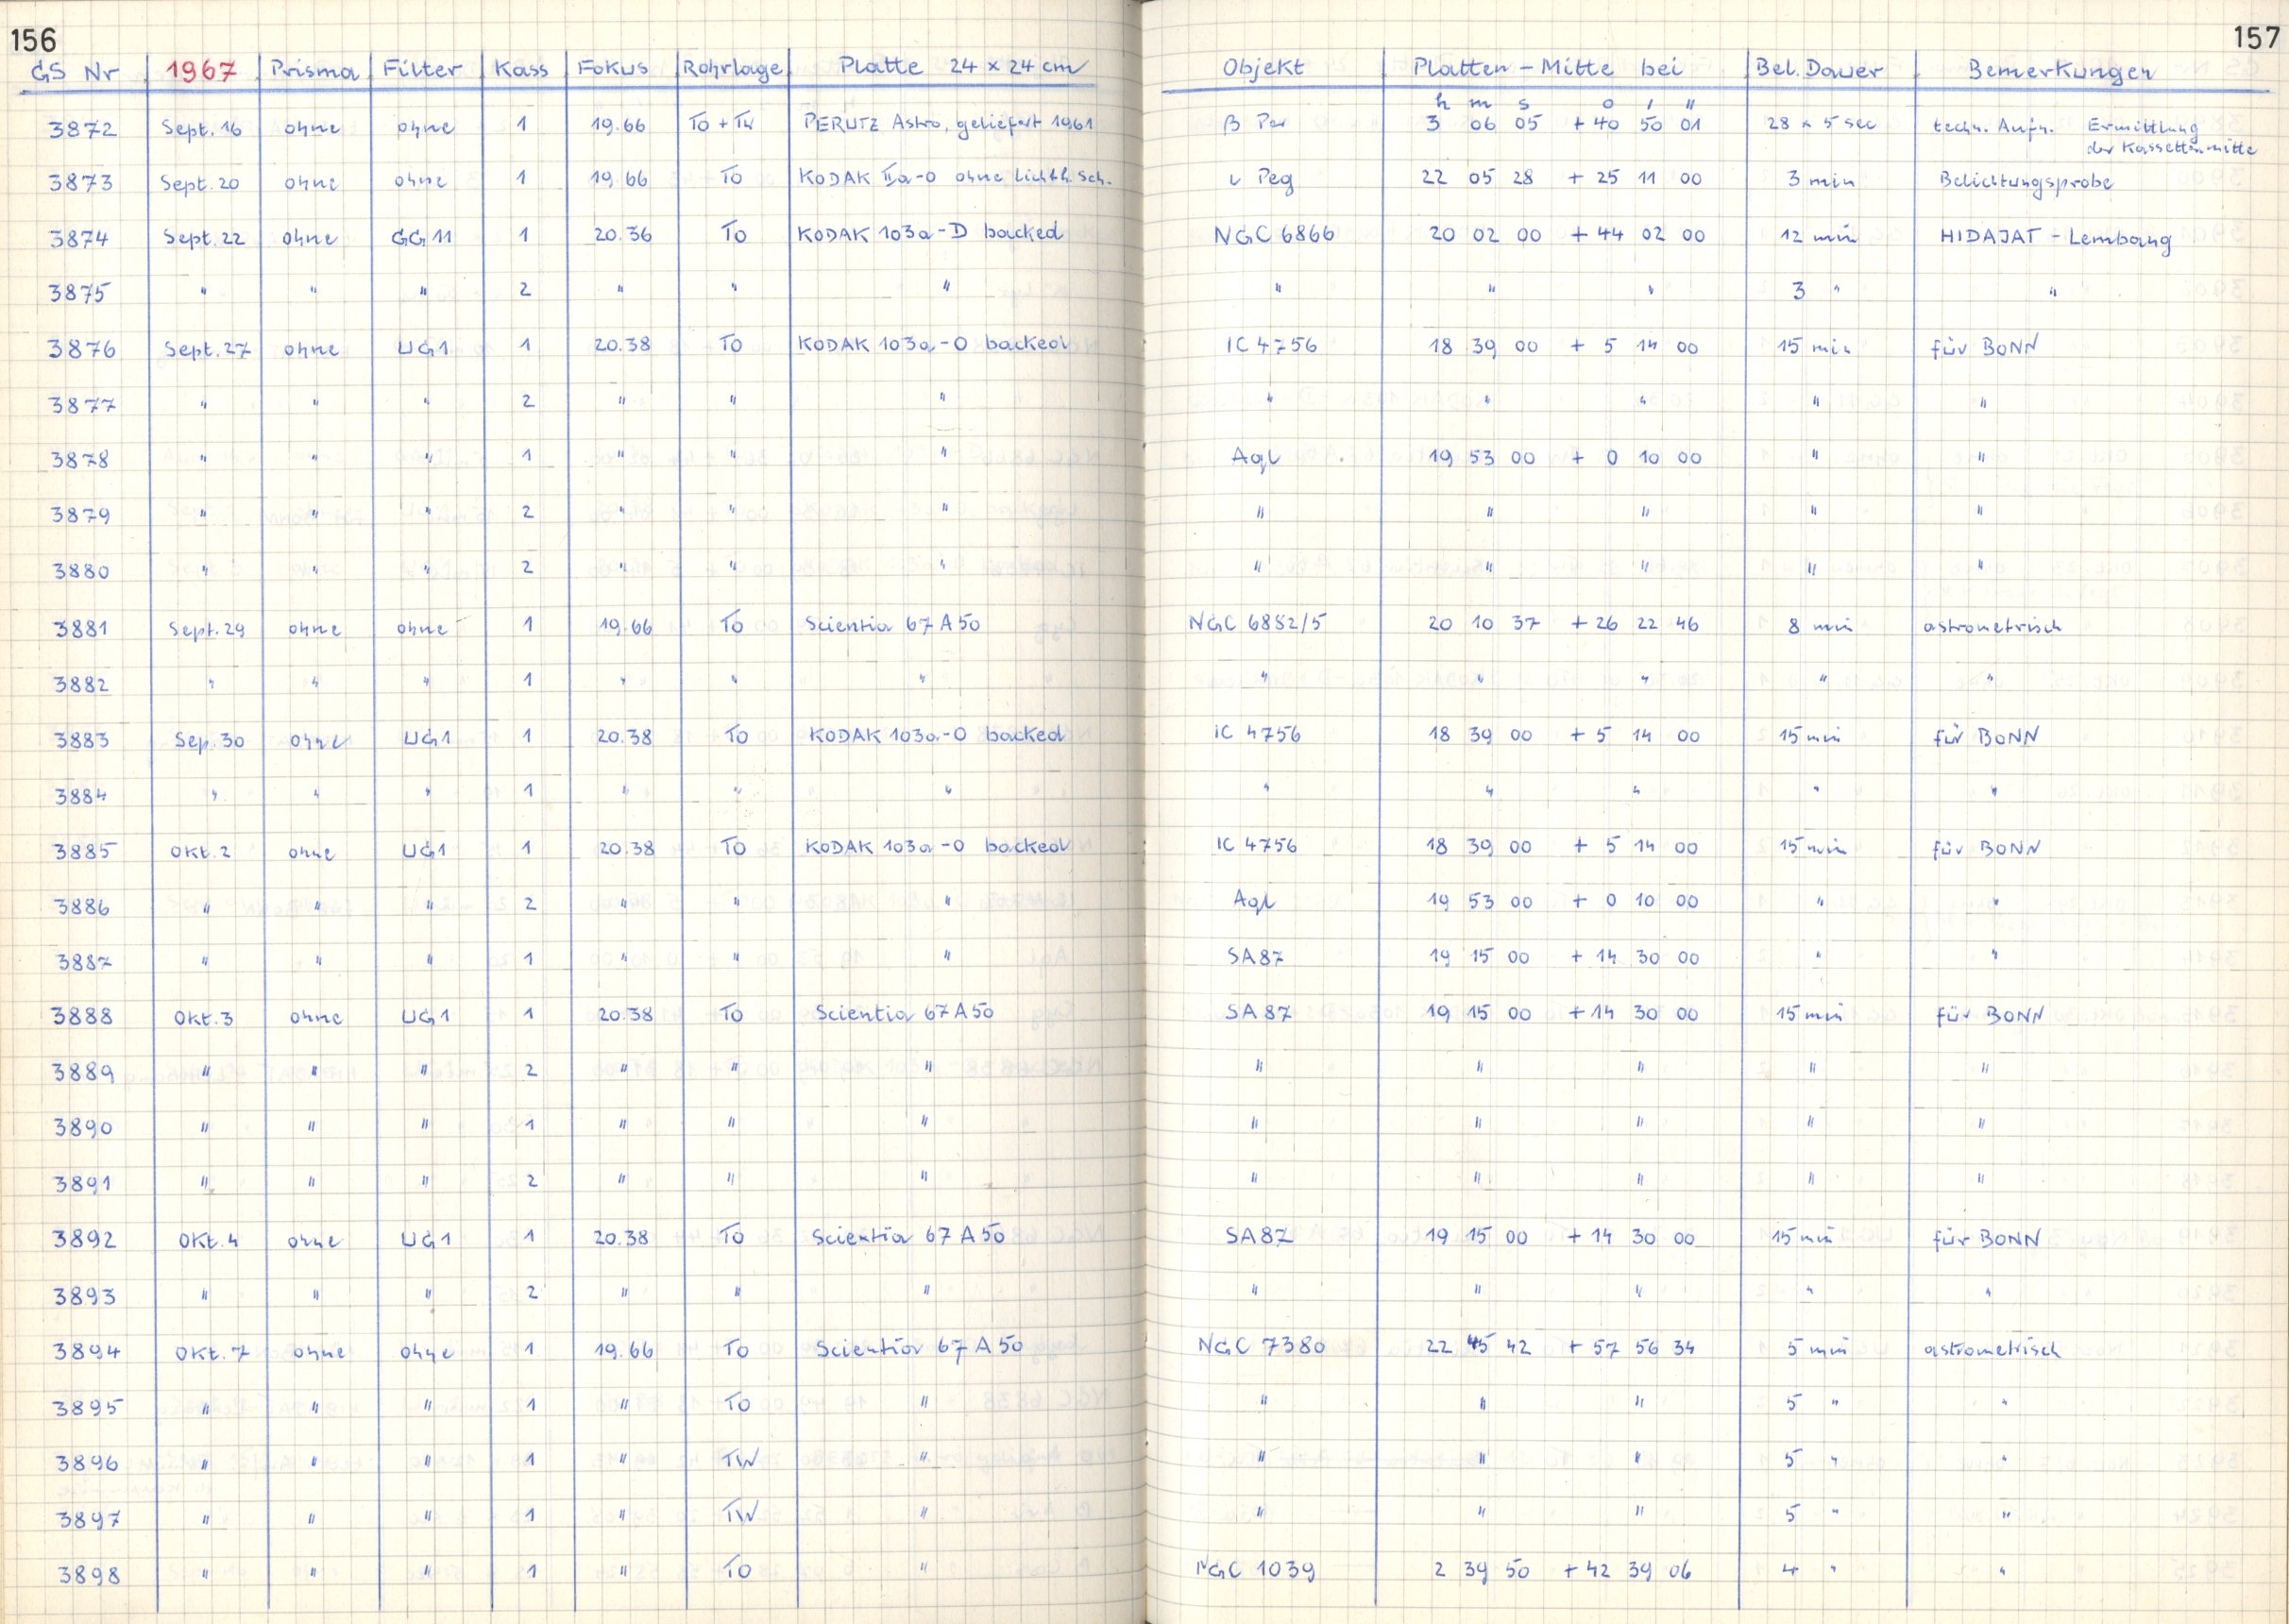 156
157
GS Nr 1967 Prisma Filter Kass Fokus Rohrlage Platte 24 x 24 cm Objekt Platten - Mitte bei Bel. Dauer Bemerkungen
h m s o ' "
3872 Sept. 16 ohne ohne 1 19.66 To + Tw PERUTZ Astro, geliefert 1961 β Per 3 06 05 + 40 50 01 28 x 5 sec techn. Aufn. Ermittlung
der Kassettenmitte
3873 Sept. 20 ohne ohne 1 19.66 To KODAK IIa-O ohne lichth. Sch. ι Peg 22 05 28 + 25 11 00 3 min Belichtungsprobe
3874 Sept. 22 ohne GG11 1 20.36 To KODAK 103a-D backed NGC 6866 20 02 00 + 44 02 00 12 min HIDAJAT - Lembang
3875 " " " 2 " " " " " " 3 " "
3876 Sept. 27 ohne UG1 1 20.38 To KODAK 103a-O backed IC 4756 18 39 00 + 5 14 00 15 min für BONN
3877 " " " 2 " " " " " " " "
3878 " " " 1 " " " Aql 19 53 00 + 0 10 00 " "
3879 " " " 2 " " " " " " " "
3880 " " " 2 " " " " " " " "
3881 Sept. 29 ohne ohne 1 19.66 To Scientia 67 A 50 NGC 6882/5 20 10 37 + 26 22 46 8 min astrometrisch
3882 " " " 1 " " " " " " " "
3883 Sep. 30 ohne UG1 1 20.38 To KODAK 103a-O backed IC 4756 18 39 00 + 5 14 00 15 min für BONN
3884 " " " 1 " " " " " " " "
3885 Okt. 2 ohne UG1 1 20.38 To KODAK 103a-O backed IC 4756 18 39 00 + 5 14 00 15 min für BONN
3886 " " " 2 " " " Aql 19 53 00 + 0 10 00 " "
3887 " " " 1 " " " SA87 19 15 00 + 14 30 00 " "
3888 Okt. 3 ohne UG1 1 20.38 To Scientia 67 A 50 SA 87 19 15 00 + 14 30 00 15 min für BONN
3889 " " " 2 " " " " " " " "
3890 " " " 1 " " " " " " " "
3891 " " " 2 " " " " " " " "
3892 Okt. 4 ohne UG1 1 20.38 To Scientia 67 A 50 SA87 19 15 00 + 14 30 00 15 min für BONN
3893 " " " 2 " " " " " " " "
3894 Okt. 7 ohne ohne 1 19.66 To Scientia 67 A 50 NGC 7380 22 45 42 + 57 56 34 5 min astrometrisch
3895 " " " 1 " To " " " " 5 " "
3896 " " " 1 " TW " " " " 5 " "
3897 " " " 1 " TW " " " " 5 " "
3898 " " " 1 " To " NGC 1039 2 39 50 + 42 39 06 4 " "